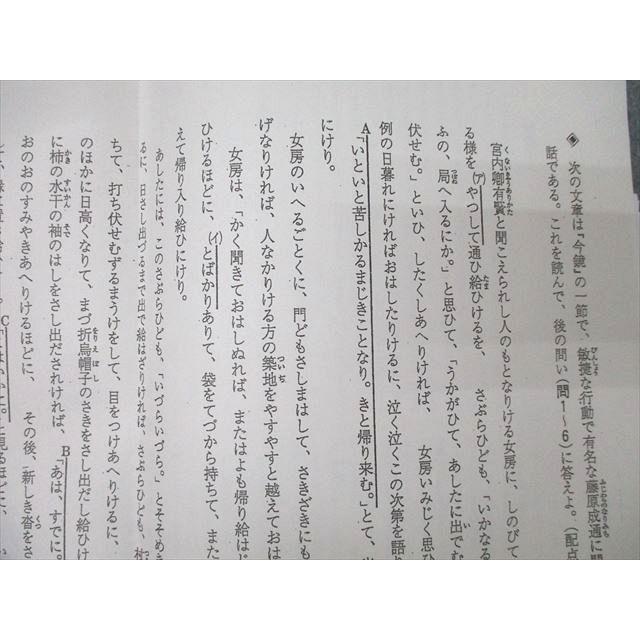 ◈ 次の文章は『今鏡』の一節で、敏捷な行動で有名な藤原成通に関
話である。これを読んで、後の問い(問1～6)に答えよ。(配点
宮内卿有賢と聞こえられし人のもとなりける女房に、しのびて
る様を(ア)やつして通ひ給ひけるを、 さぶらひども、「いかなる
ふの、局へ入るにか。」と思ひて、「うかがひて、あしたに出でむ
伏せむ。」といひ、したくしあへりければ、 女房いみじく思ひ
例の日暮れにければおはしたりけるに、泣く泣くこの次第を語り
A「いといと苦しかるまじきことなり。きと帰り来む。」とて、
にけり。
女房のいへるごとくに、門どもさしまはして、さきざきにも
げなりければ、人なかりける方の築地をやすやすと越えておは
女房は、「かく聞きておはしぬれば、またはよも帰り給はじ
ひけるほどに、(イ)とばかりありて、袋をてづから持ちて、また
えて帰り入り給ひにけり。
あしたには、このさぶらひども、「いづらいづら。」とそそめき
るに、日さし出づるまで出で給はざりければ、さぶらひども、杖
ちて、打ち伏せむずるまうけをして、目をつけあへりけるに、
のほかに日高くなりて、まづ折烏帽子のさきをさし出だし給ひけ
に柿の水干の袖のはしをさし出だされければ、 B「あは、すでに。
おのおのすみやきあへりけるほどに、 その後、新しき沓をさ